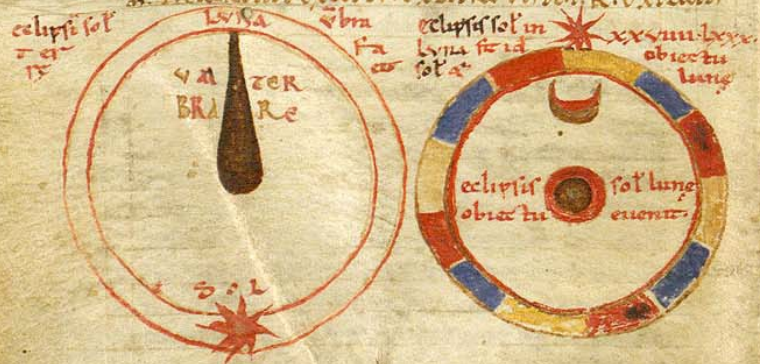 eclipsi sol
ter
LVNA
vbra
fa
cit
VM TER
BRA RE
SOL
eclipsis sol in
luna fit id
sol
XXVIIII LXXX
obiectu
lune
eclipsis sol lune
obiectu euenit